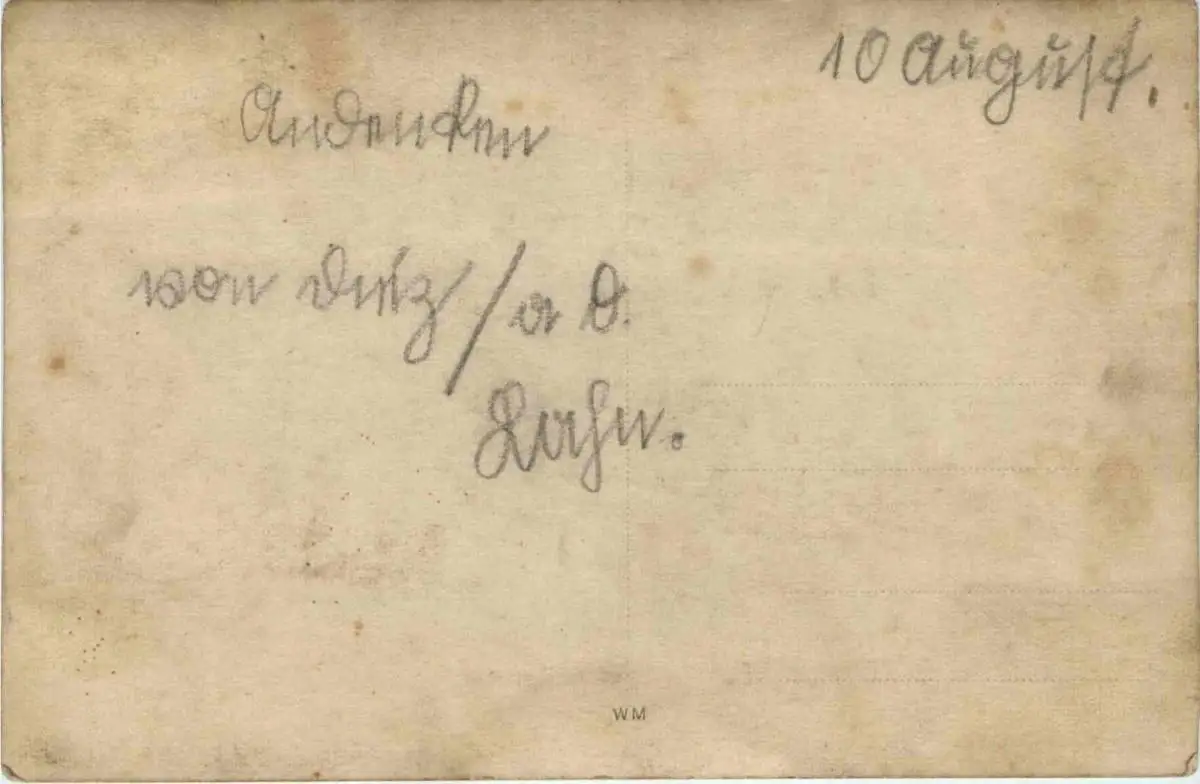 10 August.
Andenken
von Dietz/a d.
Lahn.
WM